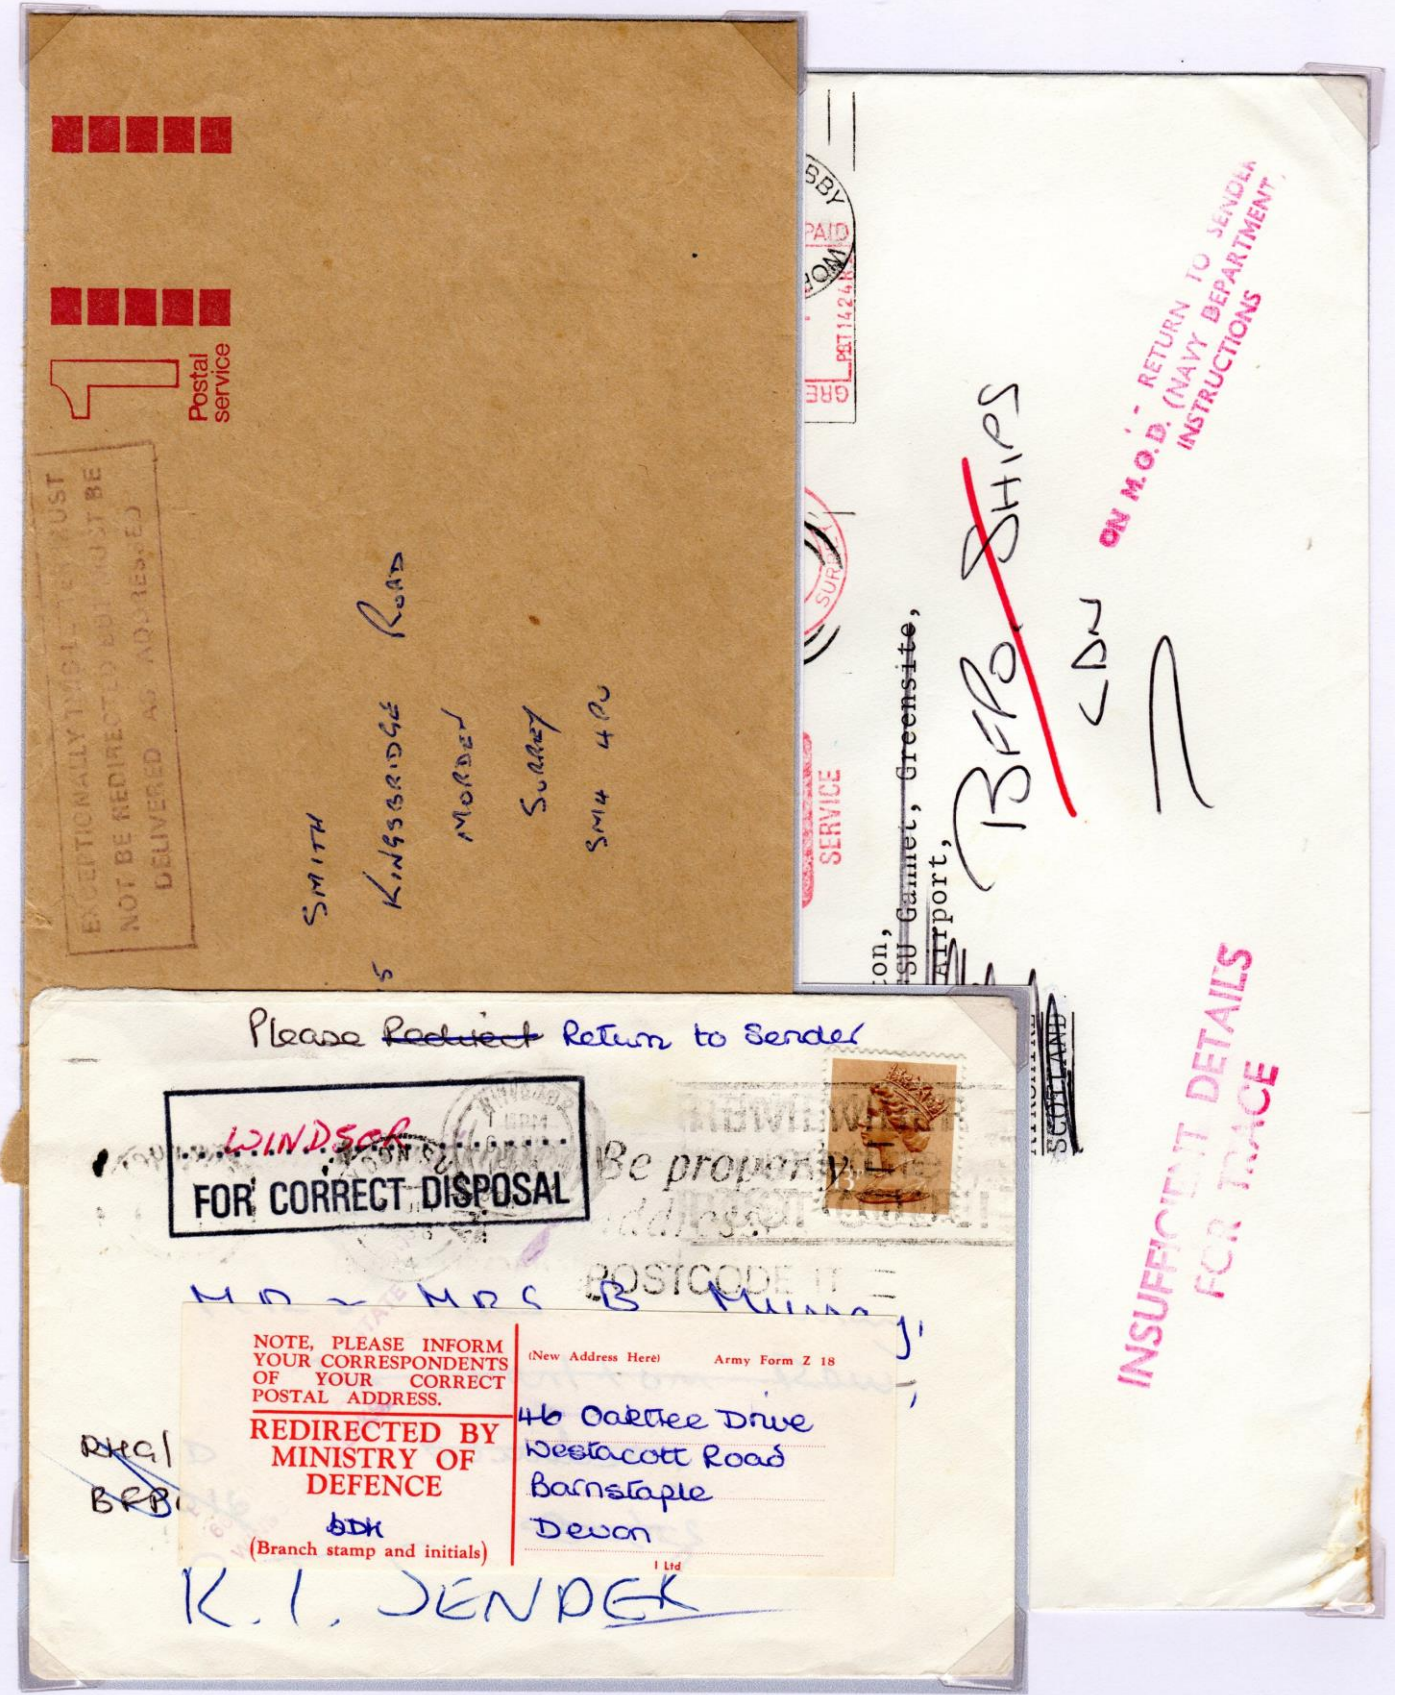 1
Postal
service
EXCEPTIONALLY THIS LETTER MUST
NOT BE REDIRECTED BUT MUST BE
DELIVERED AS ADDRESSED
SMITH
5 KINGSBRIDGE ROAD
MORDEN
SURREY
SM4 4PU
BBY
PAID
PBT1424R
GRE
SURREY
SERVICE
ON M.O.D. (NAVY DEPARTMENT)
- RETURN TO SENDER
INSTRUCTIONS
BFPO. SHIPS
LDN
ton,
SU Gannet, Greensite,
Airport,
SCOTLAND
INSUFFICIENT DETAILS
FOR TRACE
Please Redirect Return to Sender
WINDSOR
FOR CORRECT DISPOSAL
Be properly
address
POSTCODE IT
MR & MRS B Murray,
NOTE, PLEASE INFORM
YOUR CORRESPONDENTS
OF YOUR CORRECT
POSTAL ADDRESS.
REDIRECTED BY
MINISTRY OF
DEFENCE
(Branch stamp and initials)
(New Address Here) Army Form Z 18
46 Oaktree Drive
Westacott Road
Barnstaple
Devon
RHG/
R.T. SENDER